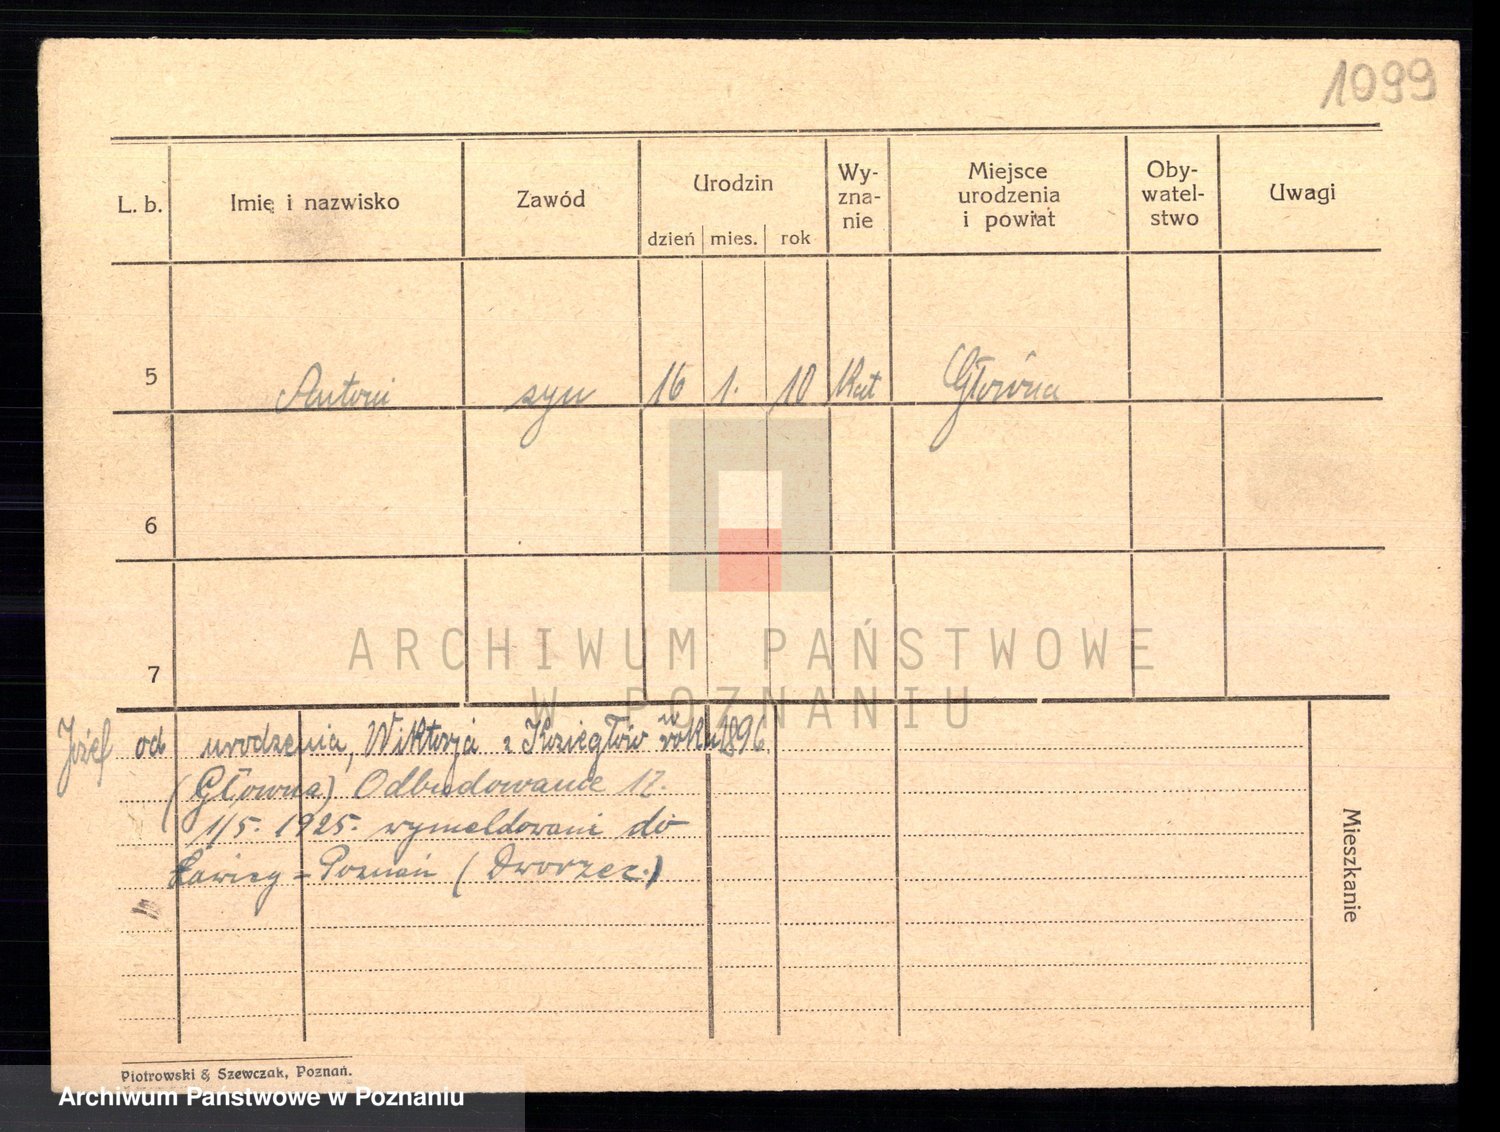 1099
L. b. Imię i nazwisko Zawód Urodzin Wy-zna-nie Miejsce urodzenia i powiat Oby-watel-stwo Uwagi
dzień mies. rok
5 Antoni syn 16 1. 10 Kat Główna
6
7
ARCHIWUM PAŃSTWOWE
W POZNANIU
Józef od urodzenia, Wiktorja z Koziegłów w roku 1896
(Główna) Odbudowanie 17.
1/5. 1925. wymeldowani do
Ławicy - Poznań (Dworzec.)
Mieszkanie
Piotrowski & Szewczak, Poznań.
Archiwum Państwowe w Poznaniu